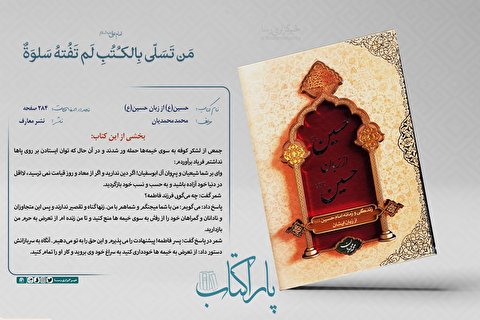 مَن تَسَلّی بِالکُتُبِ لَم تَفُتهُ سَلوَةٌ
نام کتاب: حسین(ع) از زبان حسین(ع)
۲۸۴ صفحه
مولف: محمدمحمدیان
ناشر: نشر معارف
بخشی از این کتاب:
جمعی از لشکر کوفه به سوی خیمه‌ها حمله ور شدند و در آن حال که توان ایستادن بر روی پاها
نداشتم فریاد برآوردم:
وای بر شما شیعیان و پیروان آل ابوسفیان! اگر دین ندارید و از معاد و روز قیامت نمی ترسید، لااقل
در دنیا خود آزاده باشید و به حسب و نسب خود بازگردید.
شمر گفت: چه می‌گوی فرزند فاطمه؟
پاسخ داد: می‌گویم: من با شما میجنگم و شماهم با من. زنها گناه و تقصیر ندارند و پس این متجاوزان
و نادانان و گمراهان خود را از رفتن به سوی خیمه ها منع کنید و تا من زنده ام از تعرض به حرم من
بازدارید.
شمر در پاسخ گفت: پسر فاطمه! پیشنهادت را می پذیرم و این حق را به تو می‌دهیم. آنگاه به سربازانش
دستور داد: از تعرض به خیمه ها خودداری کنید به سراغ خود وی بروید و کار او را تمام کنید.
حسین
از زبان
حسین
زندگانی و زمانه امام حسین
از زبان ایشان
پاراکتاب